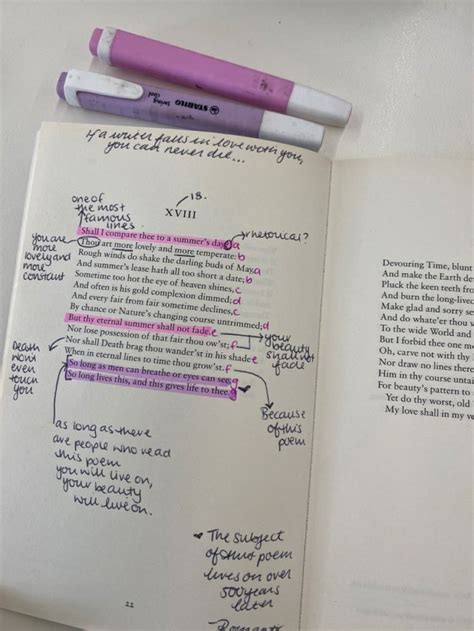 STABILO
swing
cool
If a writer falls in love with you,
you can never die...
one of
the most
famous
lines
18.
XVIII
rhetorical?
Shall I compare thee to a summer's day? a
Thou art more lovely and more temperate: b
Rough winds do shake the darling buds of May, a
And summer's lease hath all too short a date; b
Sometime too hot the eye of heaven shines, c
And often is his gold complexion dimmed; d
And every fair from fair sometime declines, c
By chance or Nature's changing course untrimmed; d
But thy eternal summer shall not fade, e
Nor lose possession of that fair thou ow'st; f
Nor shall Death brag thou wander'st in his shade e
When in eternal lines to time thou grow'st. f
So long as men can breathe or eyes can see, g
So long lives this, and this gives life to thee. g
you are
more
lovely and
more
constant
your
beauty
shall not
fade
Death
won't
even
touch
you
Because
of this
poem
as long as there
are people who read
this poem
you will live on,
your beauty
will live on.
The subject
of this poem
lives on over
500 years
later
Romantic
22
Devouring Time, blunt
And make the Earth de
Pluck the keen teeth fro
And burn the long-live
Make glad and sorry se
And do whate'er thou w
To the wide World and
But I forbid thee one m
Oh, carve not with thy
Nor draw no lines there
Him in thy course untain
For beauty's pattern to
Yet do thy worst, old
My love shall in my ve